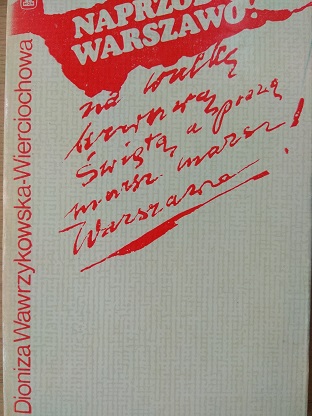 NAPRZÓD
WARSZAWO!
na walkę
krwawą,
Świętą a prawą
marsz, marsz
Warszawo!
Dioniza Wawrzykowska-Wierciochowa